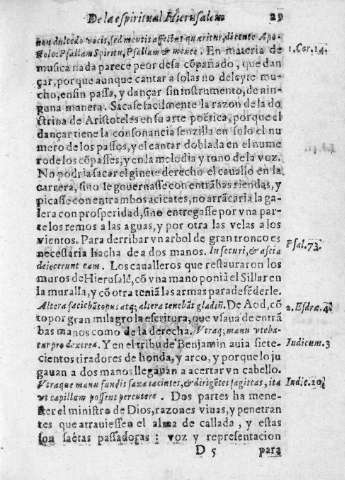 De la espiritual Hierusalem 29
non dulcedo vocis, sed mentis affectus quæritur, dicente Apo-
stolo: Psallam Spiritu, Psallam & mente. En materia de
musica nada parece peor desacõpañado, que dan
çar, porque aunque cantar a solas no deleyte mu-
cho, ensin passa, y dançar sin instrumento, de nin-
guna manera. Sacase facilmente la razon de la do
ctrina de Aristoteles en su arte poëtica, porque el
dançar tiene la consonancia senzilla en solo el nu
mero de los passos, y el cantar doblada en el nume
ro de los cõpasses, y en la melodia y tono de la voz.
No podria sacar el ginete derecho el cauallo en la
carrera, sino le gouernasse con entrãbas riendas, y
picasse con entrambos acicates, no arrãcaria la ga-
lera con prosperidad, sino entregasse por vna par-
te los remos a las aguas, y por otra las velas a los
vientos. Para derribar vn arbol de gran tronco es
necessaria hacha de a dos manos. In securi, & ascia
deiecerunt eam. Los caualleros que restauraron los
muros de Hierusalẽ, cõ vna mano poniã el Sillar en
la muralla, y cõ otra teniã las armas para defẽderle.
Altera faciebãt opus, atq; altera tenebãt gladiũ. De Aod, cõ
to por gran milagro la escritura, que vsaua de entrã
bas manos como de la derecha. Vtraq; manu vteba-
tur pro dextera. Y en el tribu de Benjamin auia siete-
cientos tiradores de honda, y arco, y porque lo ju
gauan a dos manos llegauan a acertar vn cabello.
Vtraque manu fundis saxa iacientes, & dirigẽtes sagittas, ita
vt capillum possent percutere. Dos partes ha mene-
ster el ministro de Dios, razones viuas, y penetran
tes que atrauiessen el alma de callada, y estas
son saetas passadoras: voz y representacion
D 5 para
1. Cor. 14.
Psal. 73.
2. Esdræ. 4.
Iudicum. 3
Iudic. 20.